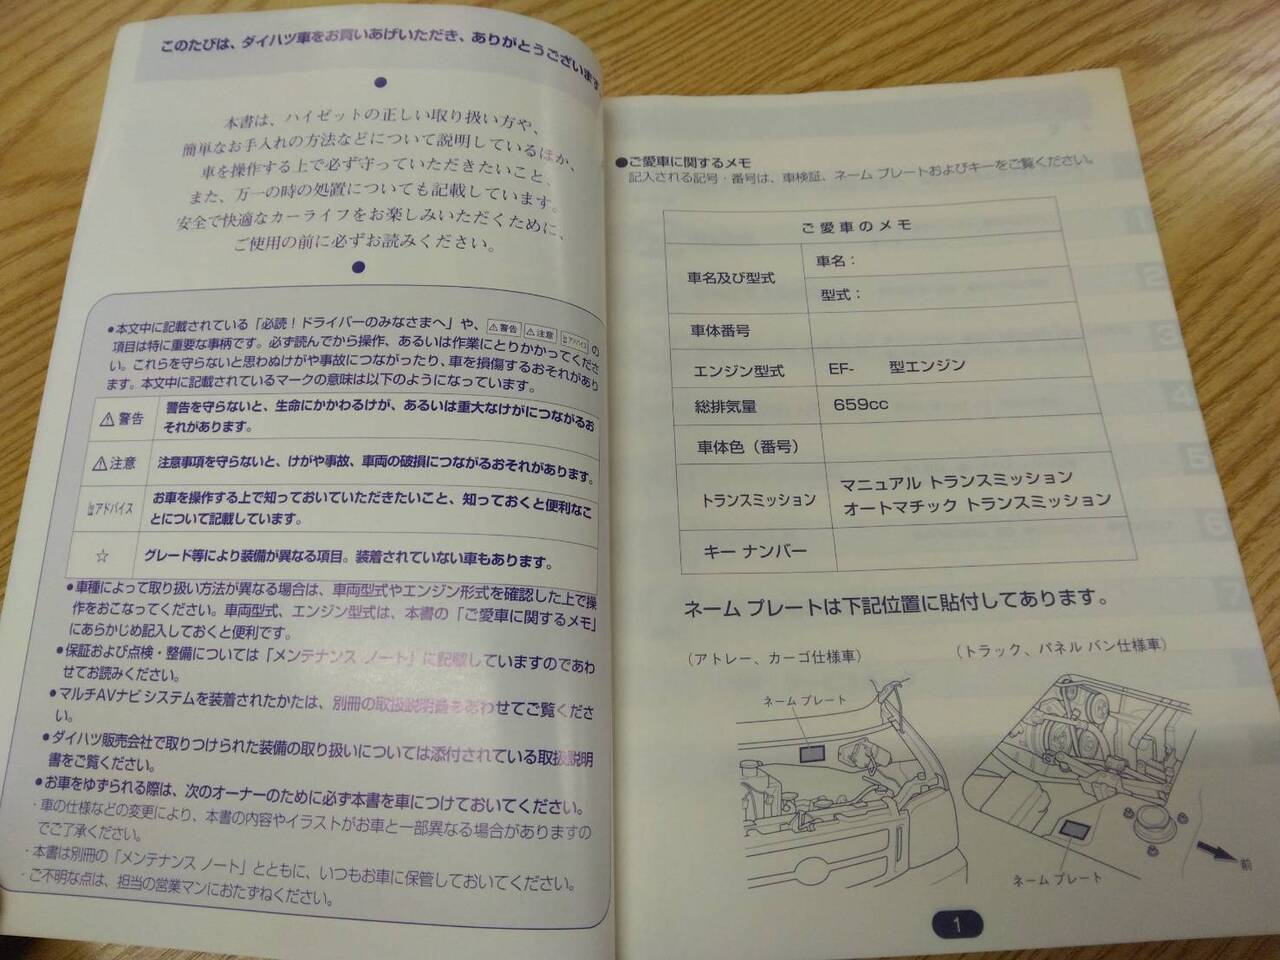 このたびは、ダイハツ車をお買いあげいただき、ありがとうございます
本書は、ハイゼットの正しい取り扱い方や、
簡単なお手入れの方法などについて説明しているほか、
車を操作する上で必ず守っていただきたいこと、
また、万一の時の処置についても記載しています。
安全で快適なカーライフをお楽しみいただくために、
ご使用の前に必ずお読みください。
●本文中に記載されている「必読！ドライバーのみなさまへ」や、⚠警告 ⚠注意 アドバイス の
項目は特に重要な事柄です。必ず読んでから操作、あるいは作業にとりかかってくださ
い。これらを守らないと思わぬけがや事故につながったり、車を損傷するおそれがあり
ます。本文中に記載されているマークの意味は以下のようになっています。
⚠警告 警告を守らないと、生命にかかわるけが、あるいは重大なけがにつながるお
それがあります。
⚠注意 注意事項を守らないと、けがや事故、車両の破損につながるおそれがあります。
アドバイス お車を操作する上で知っておいていただきたいこと、知っておくと便利なこ
とについて記載しています。
☆ グレード等により装備が異なる項目。装着されていない車もあります。
●車種によって取り扱い方法が異なる場合は、車両型式やエンジン形式を確認した上で操
作をおこなってください。車両型式、エンジン型式は、本書の「ご愛車に関するメモ」
にあらかじめ記入しておくと便利です。
●保証および点検・整備については「メンテナンス ノート」に記載していますのであわ
せてお読みください。
●マルチAVナビシステムを装着されたかたは、別冊の取扱説明書もあわせてご覧くださ
い。
●ダイハツ販売会社で取りつけられた装備の取り扱いについては添付されている取扱説明
書をご覧ください。
●お車をゆずられる際は、次のオーナーのために必ず本書を車につけておいてください。
・車の仕様などの変更により、本書の内容やイラストがお車と一部異なる場合がありますの
でご了承ください。
・本書は別冊の「メンテナンス ノート」とともに、いつもお車に保管しておいてください。
・ご不明な点は、担当の営業マンにおたずねください。
●ご愛車に関するメモ
記入される記号・番号は、車検証、ネーム プレートおよびキーをご覧ください。
ご愛車のメモ
車名及び型式 車名：
型式：
車体番号
エンジン型式 EF- 型エンジン
総排気量 659cc
車体色（番号）
トランスミッション マニュアル トランスミッション
オートマチック トランスミッション
キー ナンバー
ネーム プレートは下記位置に貼付してあります。
（アトレー、カーゴ仕様車） （トラック、パネル バン仕様車）
ネーム プレート
ネーム プレート
前
1